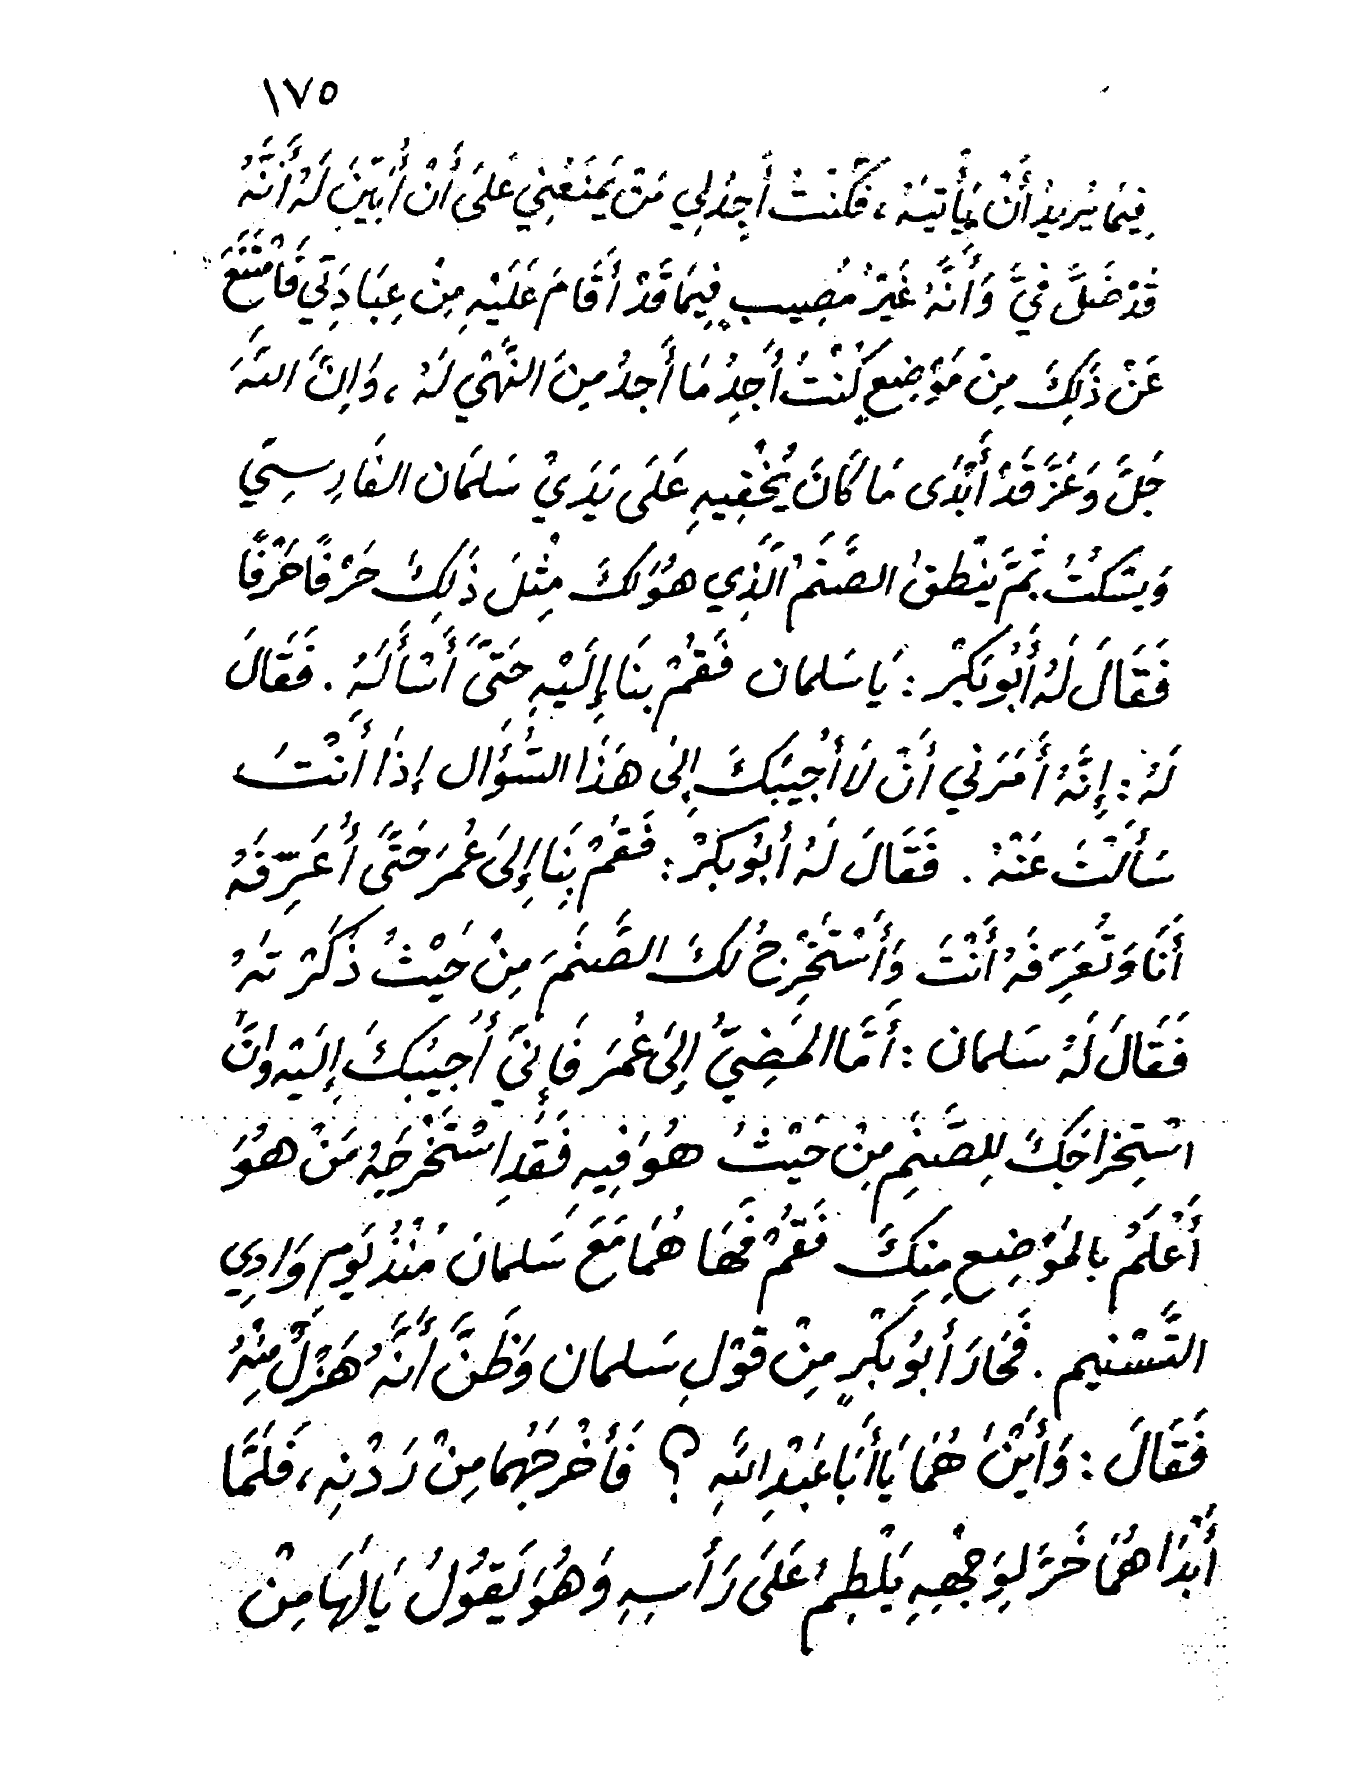 ١٧٥
فِيمَا يُرِيدُ أَنْ يَأْتِيَهُ ، فَكُنْتُ أَجِدُ لِي مَنْ يَمْنَعُنِي عَلَى أَنْ أُبَيِّنَ لَهُ أَنَّهُ
قَدْ ضَلَّ فِيَّ وَأَنَّهُ غَيْرُ مُصِيبٍ فِيمَا قَدْ أَقَامَ عَلَيْهِ مِنْ عِبَادَتِي فَامْتَنَعَ
عَنْ ذَلِكَ مِنْ مَوْضِعٍ كُنْتُ أَجِدُ مَا أَجِدُ مِنَ النَّهْيِ لَهُ ، وَإِنَّ اللَّهَ
جَلَّ وَعَزَّ قَدْ أَبْدَى مَا كَانَ يُخْفِيهِ عَلَى يَدَيْ سَلمَان الفَارِسِيِّ
وَيَسْكُتُ ثُمَّ يَنْطِقُ الصَّنَمُ الَّذِي هُوَ لَكَ مِثْلَ ذَلِكَ حَرْفًا حَرْفًا
فَقَالَ لَهُ أَبُو بَكْرٍ : يَا سَلمان فَقُمْ بِنَا إِلَيْهِ حَتَّى أَسْأَلَهُ . فَقَالَ
لَهُ : إِنَّهُ أَمَرَنِي أَنْ لَا أُجِيبَكَ إِلَى هَذَا السُّؤَال إِذَا أَنْتَ
سَأَلْتَ عَنْهُ . فَقَالَ لَهُ أَبُو بَكْرٍ : فَقُمْ بِنَا إِلَى عُمَرَ حَتَّى أُعَرِّفَهُ
أَنَا وَتُعَرِّفَهُ أَنْتَ وَأَسْتَخْرِجُ لَكَ الصَّنَمَ مِنْ حَيْثُ ذَكَرْتَهُ
فَقَالَ لَهُ سَلمان : أَمَّا المَضِيُّ إِلَى عُمَرَ فَإِنِّي أُجِيبُكَ إِلَيْهِ وَإِنَّ
اسْتِخْرَاجَكَ لِلصَّنَمِ مِنْ حَيْثُ هُوَ فِيهِ فَقَدِ اسْتَخْرَجَهُ مَنْ هُوَ
أَعْلَمُ بِالمَوْضِعِ مِنْكَ فَقُمْ فَهَا هُمَا مَعَ سَلمانَ مُنْذُ يَوْمِ وَادِي
التَّسْنِيمِ . فَحَارَ أَبُو بَكْرٍ مِنْ قَوْلِ سَلمان وَظَنَّ أَنَّهُ هَزْلٌ مِنْهُ
فَقَالَ : وَأَيْنَ هُمَا يَا أَبَا عَبْدِ اللَّهِ ؟ فَأَخْرَجَهُمَا مِنْ رَدْنِهِ ، فَلَمَّا
أَبْدَاهُمَا خَرَّ لِوَجْهِهِ يَلْطِمُ عَلَى رَأْسِهِ وَهُوَ يَقُولُ يَا لَهَا مِنْ